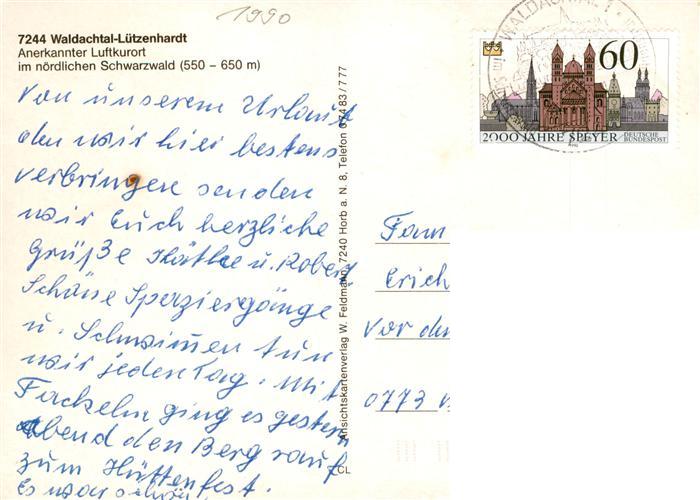 1990
7244 Waldachtal-Lützenhardt
Anerkannter Luftkurort
im nördlichen Schwarzwald (550 – 650 m)
Von unserem Urlaub
den wir hier bestens
verbringen senden
wir Euch herzliche
Grüße Käthe u. Robert
Schöne Spaziergänge
u. Schwimmen tun
wir jeden Tag. Mit
Fackeln ging es gestern
abend den Berg rauf
zum Hüttenfest.
Es war schön
Ansichtskartenverlag W. Feldmann, 7240 Horb a. N. 8, Telefon 0 74 83 / 7 77
CL
WALDACHTAL 1
60
2000 JAHRE SPEYER
DEUTSCHE
BUNDESPOST
1990
Fam
Erich
Vor der